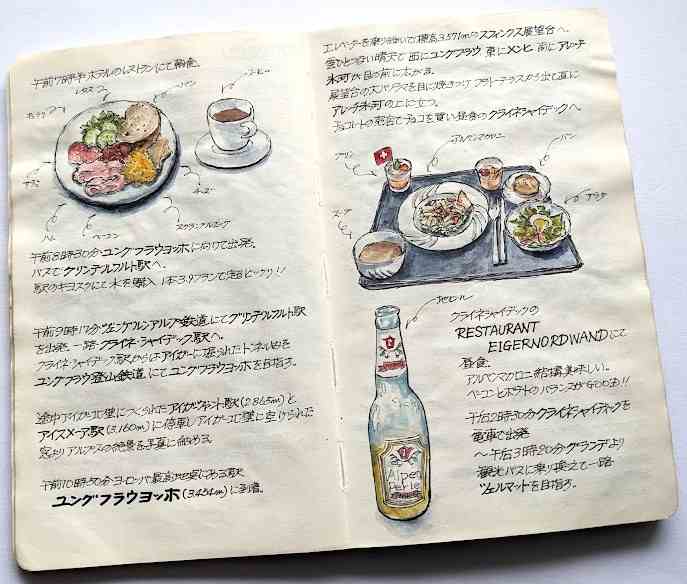 午前7時半ホテルのレストランにて朝食.
レタス
パン
コーヒー
サラミ
チーズ
ハム
ベーコン
スクランブルエッグ
午前8時30分ユングフラウヨッホに向けて出発.
バスでグリンデルワルト駅へ.
駅のキヨスクにて水を購入 1本3.9フランで超ビックリ!!
午前9時17分ヴェンゲルンアルプ鉄道にてグリンデルワルト駅
を出発.一路クライネ・シャイデック駅へ.
クライネ・シャイデック駅からはアイガーに掘られたトンネル内を
ユングフラウ登山鉄道にてユングフラウヨッホを目指す.
途中アイガー北壁につくられたアイガーヴァント駅(2.865m)と
アイスメーア駅(3.160m)に停車しアイガー北壁に空けられた
窓よりアルプスの絶景を写真に納める.
午前10時50分ヨーロッパ最高地点にある駅
ユングフラウヨッホ(3.454m)に到着.
エレベーターを乗り継いで標高3.571mのスフィンクス展望台へ.
雲ひとつない晴天で西にユングフラウ 東にメンヒ 南にアレッチ
氷河が目の前に広がる.
展望台の大パノラマを目に焼きつけ プラトーテラスから出て直に
アレッチ氷河の上に立つ.
チョコレートの売店でチョコを買い昼食のクライネシャイデックへ
プリン
アルペンマカロニ
パン
サラダ
スープ
地ビール
Alpen
Perle
クライネシャイデックの
RESTAURANT
EIGERNORDWANDにて
昼食.
アルペンマカロニ結構美味しい.
ベーコンとポテトのバランスがGood!!
午后2時30分クライネシャイデックを
電車で出発
〜午后3時20分グランデより
観光バスに乗り換えて一路
ツェルマットを目指す.